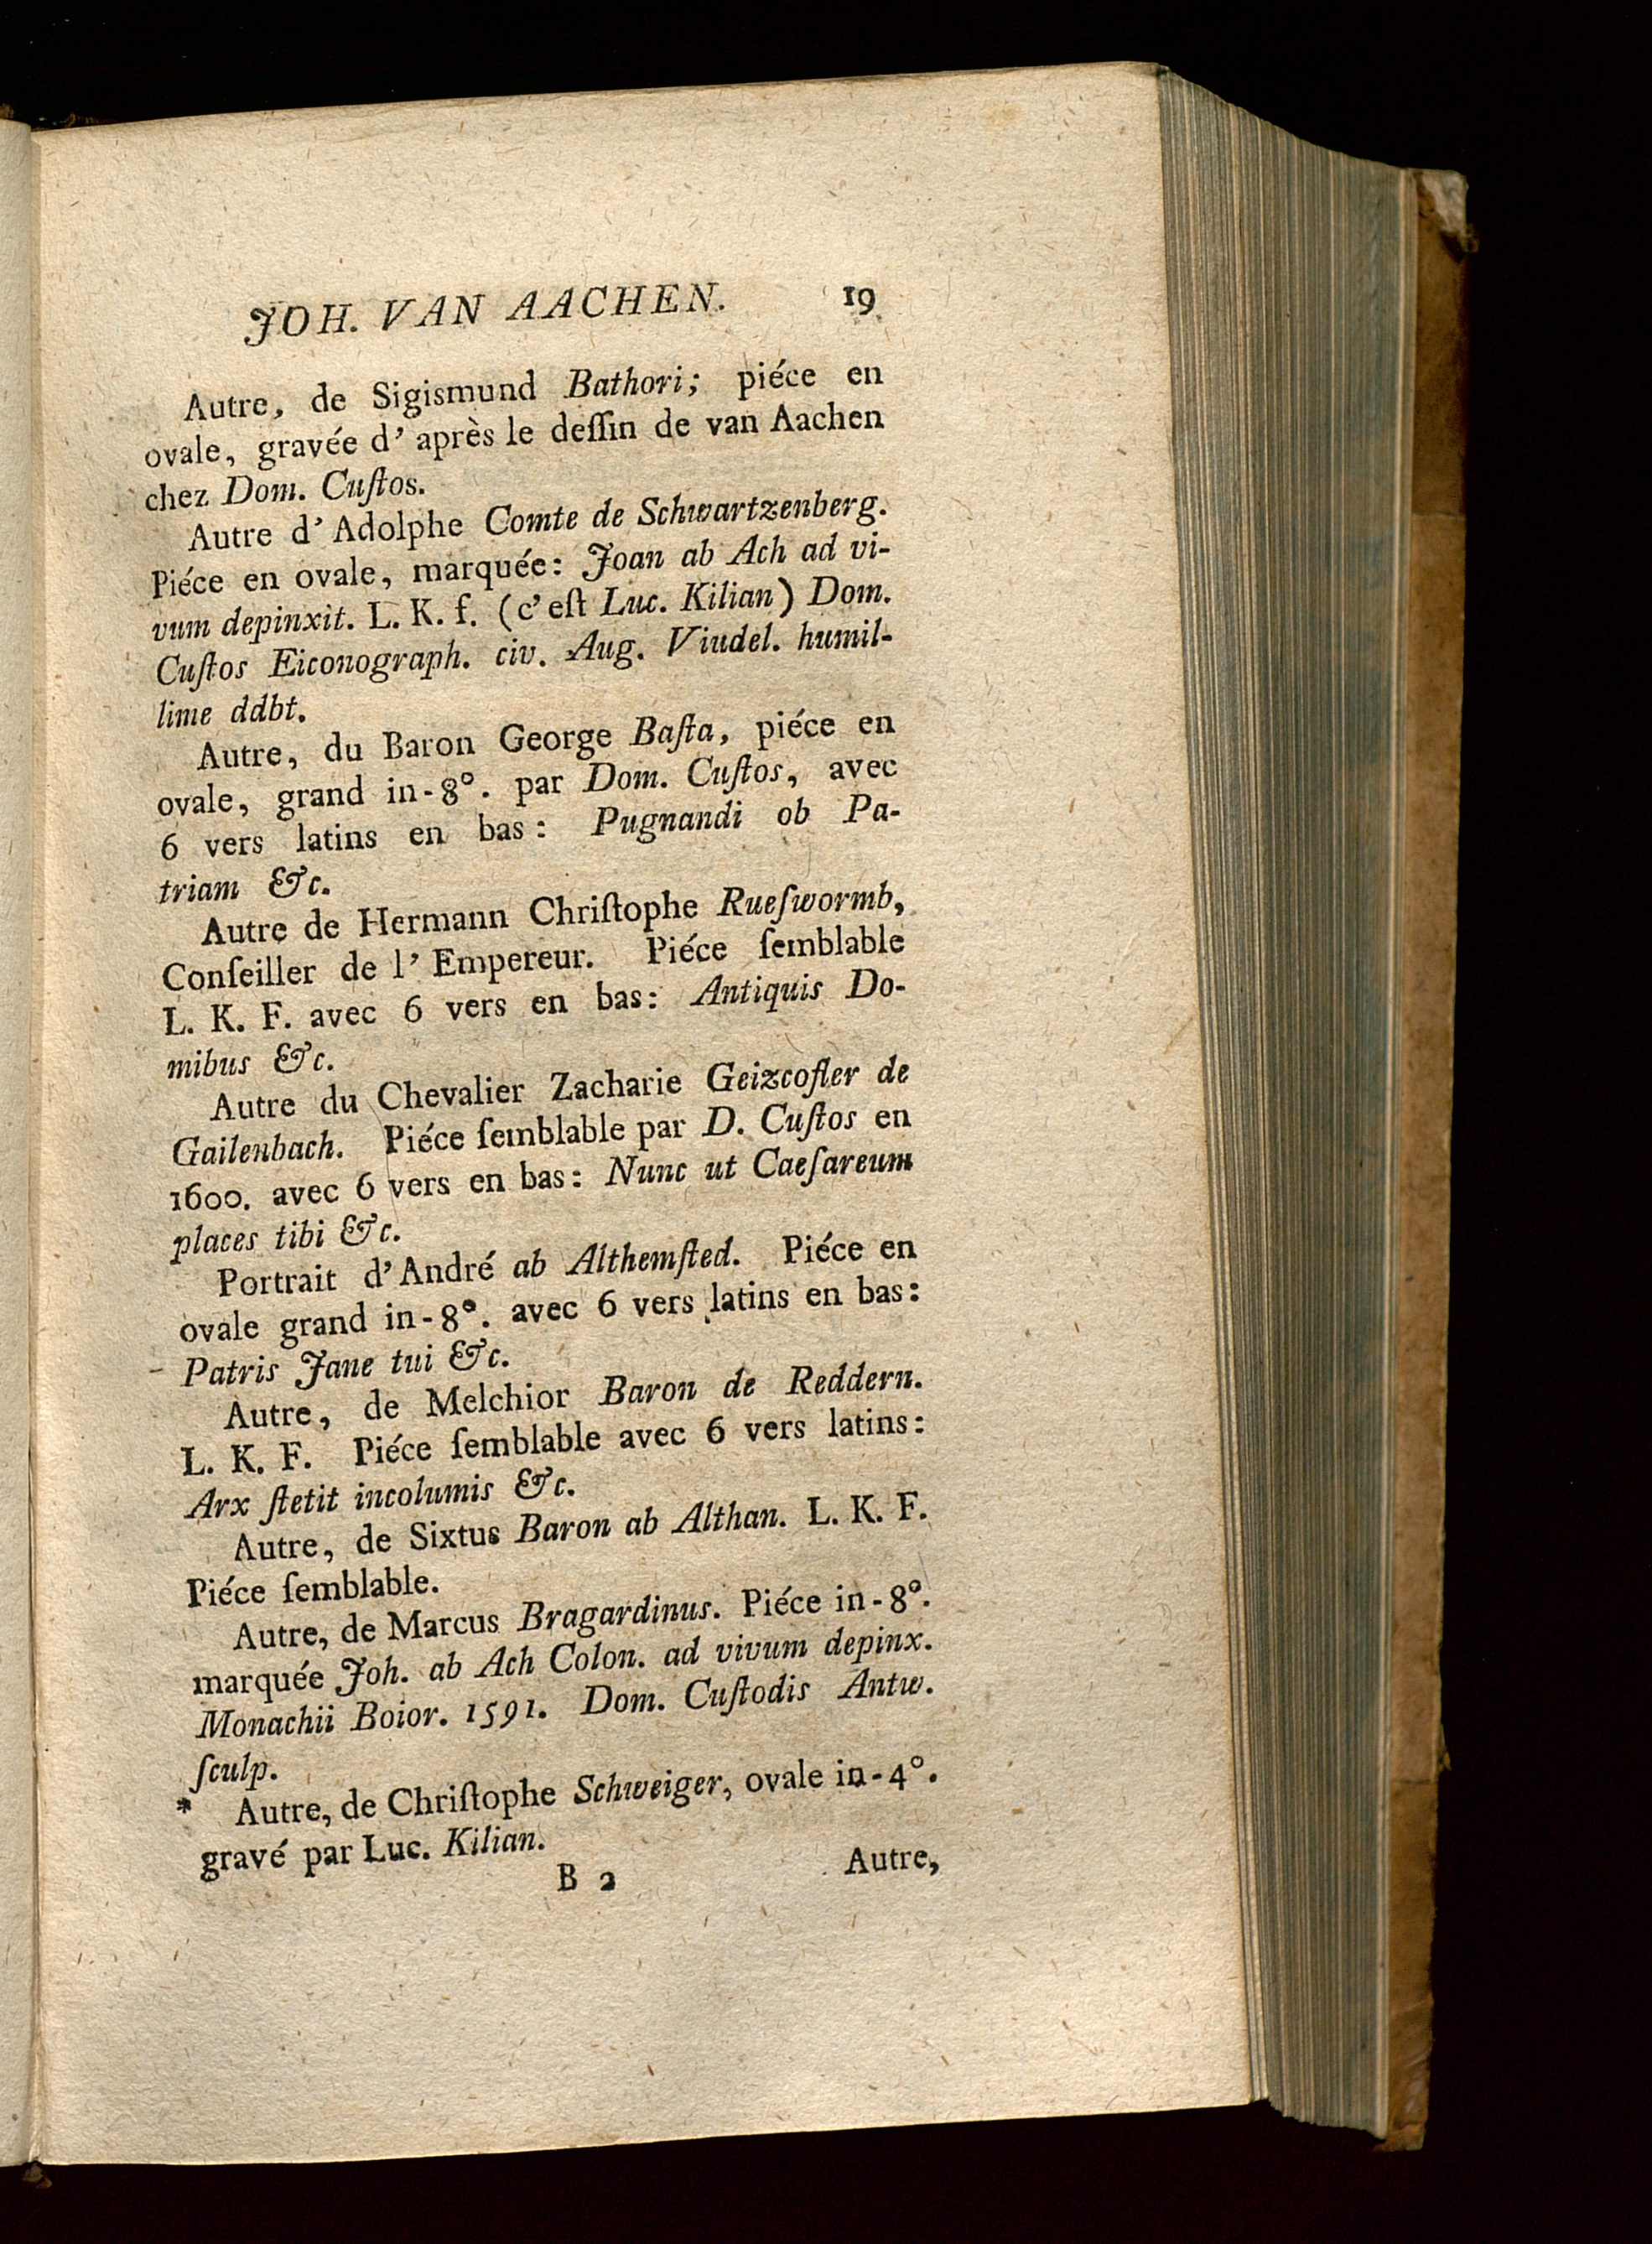 JOH. VAN AACHEN. 19
Autre, de Sigismund Bathori; piéce en
ovale, gravée d' après le deſſin de van Aachen
chez Dom. Cuſtos.
Autre d' Adolphe Comte de Schwartzenberg.
Piéce en ovale, marquée: Joan ab Ach ad vi-
vum depinxit. L. K. f. (c' eſt Luc. Kilian) Dom.
Cuſtos Eiconograph. civ. Aug. Viudel. humil-
lime ddbt.
Autre, du Baron George Baſta, piéce en
ovale, grand in-8°. par Dom. Cuſtos, avec
6 vers latins en bas: Pugnandi ob Pa-
triam &c.
Autre de Hermann Chriſtophe Rueſwormb,
Conſeiller de l' Empereur. Piéce ſemblable
L. K. F. avec 6 vers en bas: Antiquis Do-
mibus &c.
Autre du Chevalier Zacharie Geizcofler de
Gailenbach. Piéce ſemblable par D. Cuſtos en
1600. avec 6 vers en bas: Nunc ut Caeſareum
places tibi &c.
Portrait d'André ab Althemſted. Piéce en
ovale grand in-8°. avec 6 vers latins en bas:
Patris Jane tui &c.
Autre, de Melchior Baron de Reddern.
L. K. F. Piéce ſemblable avec 6 vers latins:
Arx ſtetit incolumis &c.
Autre, de Sixtus Baron ab Althan. L. K. F.
Piéce ſemblable.
Autre, de Marcus Bragardinus. Piéce in-8°.
marquée Joh. ab Ach Colon. ad vivum depinx.
Monachii Boior. 1591. Dom. Cuſtodis Antw.
ſculp.
* Autre, de Chriſtophe Schweiger, ovale in-4°.
gravé par Luc. Kilian.
B 2 Autre,